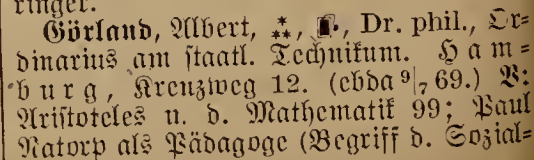 ringer.
Görland, Albert, ⁂, Dr. phil., Or=
dinarius am staatl. Technikum. Ham=
burg, Kreuzweg 12. (ebda 9|7 69.) V:
Aristoteles u. d. Mathematik 99; Paul
Natorp als Pädagoge (Begriff d. Sozial=